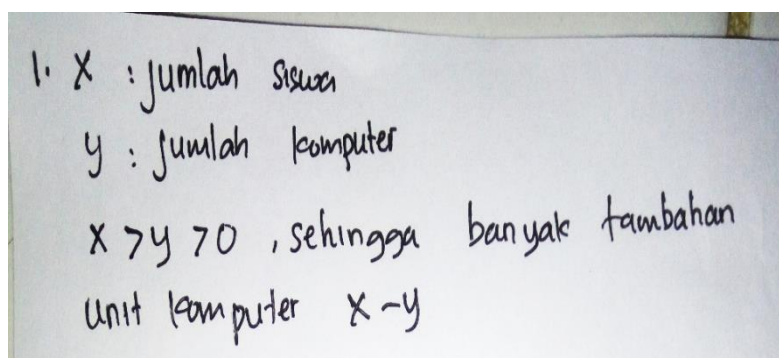 1. X : jumlah siswa
y : jumlah komputer
x > y > 0 , sehingga banyak tambahan
unit komputer x - y